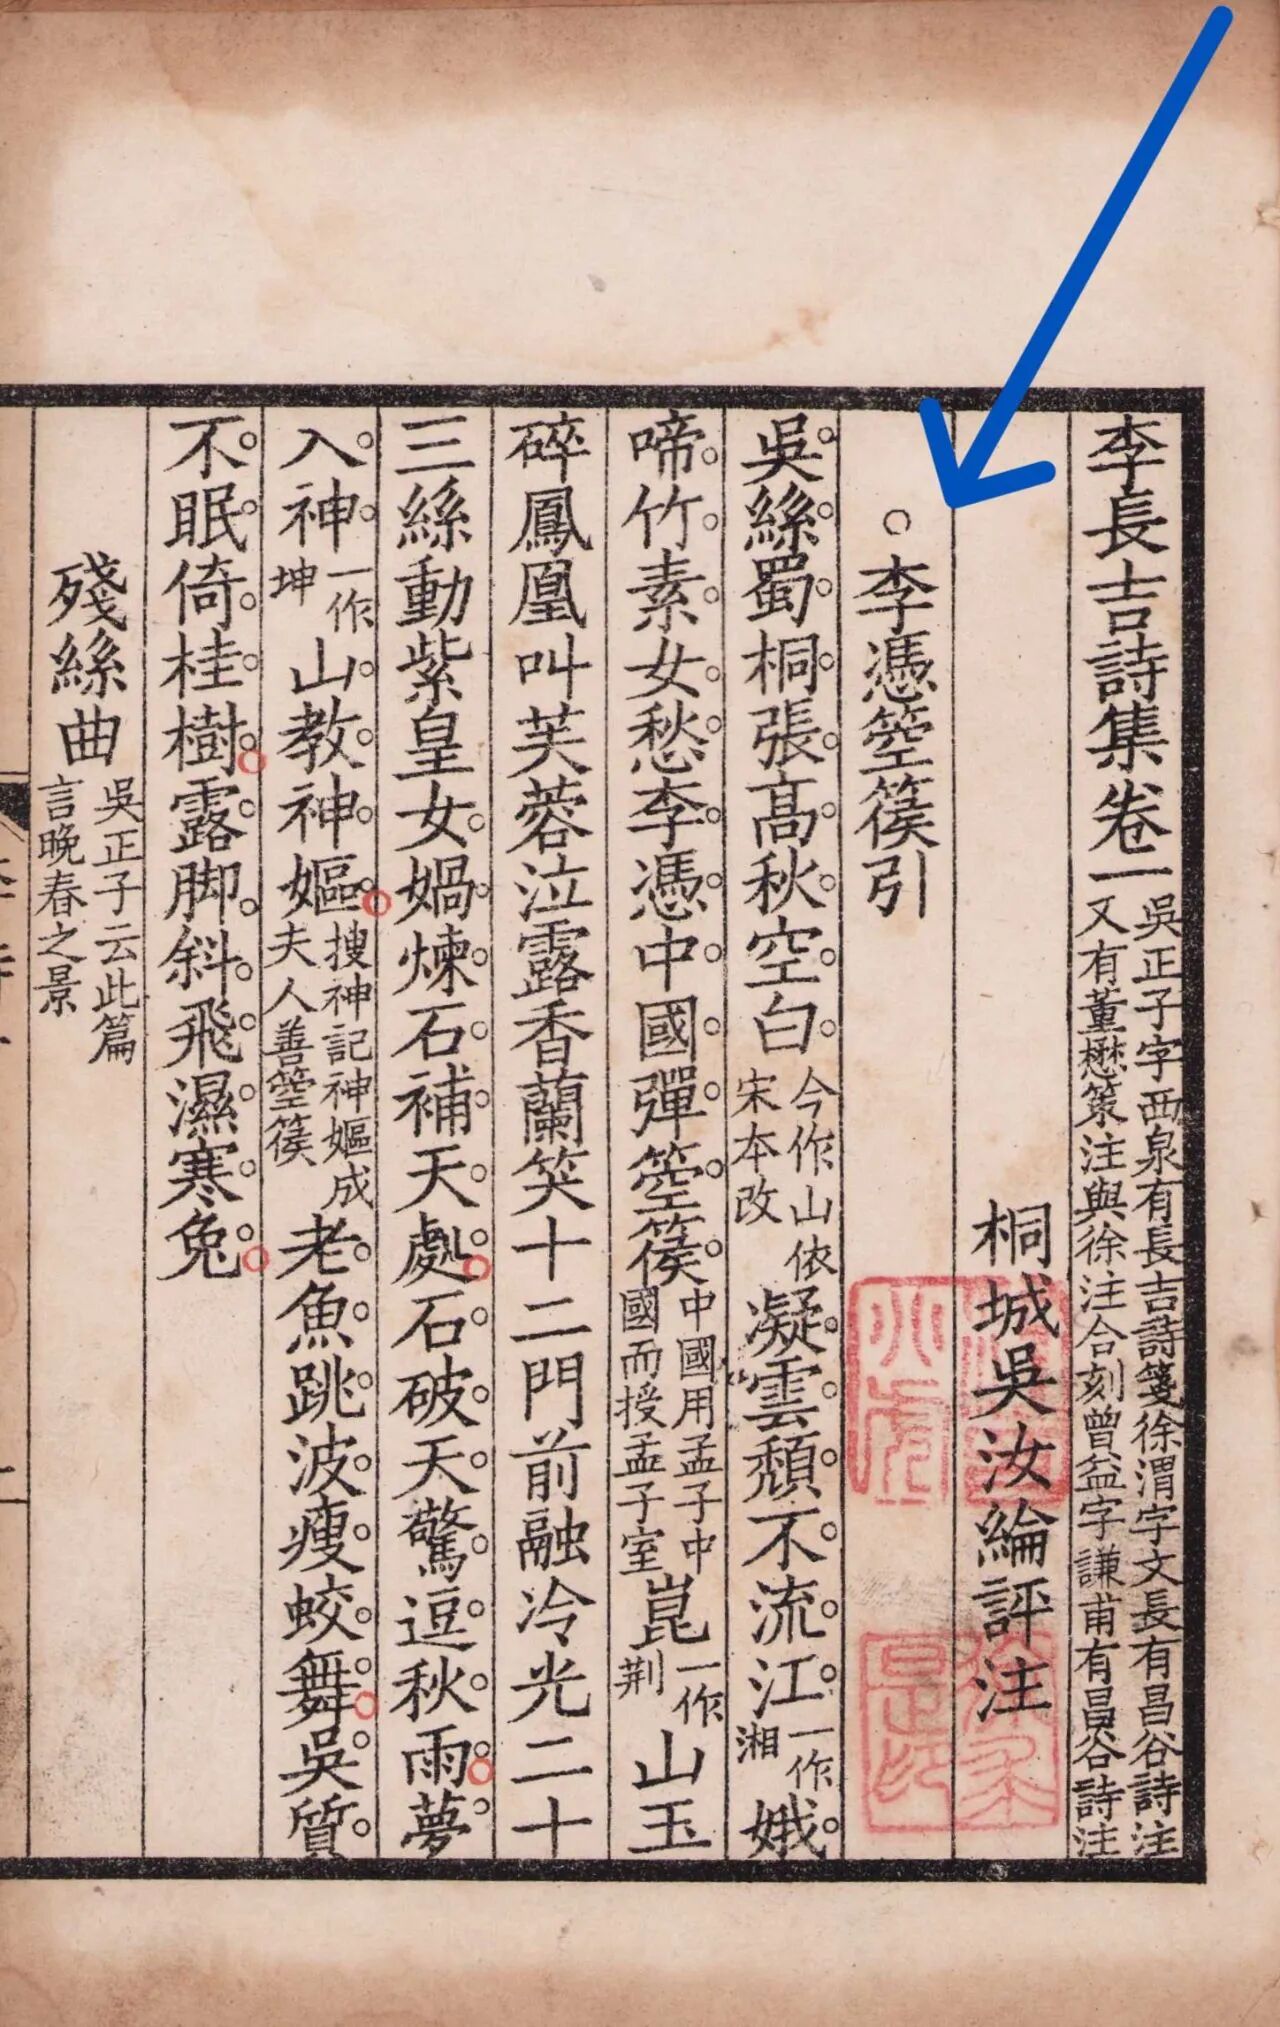 李長吉詩集卷一
吳正子字西泉有長吉詩箋徐渭字文長有昌谷詩注
又有董懋策注與徐注合刻曾益字謙甫有昌谷詩注
桐城吳汝綸評注
○李憑箜篌引
吳絲蜀桐張高秋空白今作山依宋本改凝雲頹不流江一作湘娥
啼竹素女愁李憑中國彈箜篌中國用孟子中國而授孟子室崑一作荆山玉
碎鳳凰叫芙蓉泣露香蘭笑十二門前融冷光二十
三絲動紫皇女媧煉石補天處石破天驚逗秋雨夢
入神一作坤山教神嫗搜神記神嫗成夫人善箜篌老魚跳波瘦蛟舞吳質
不眠倚桂樹露脚斜飛濕寒兔
殘絲曲吳正子云此篇言晚春之景